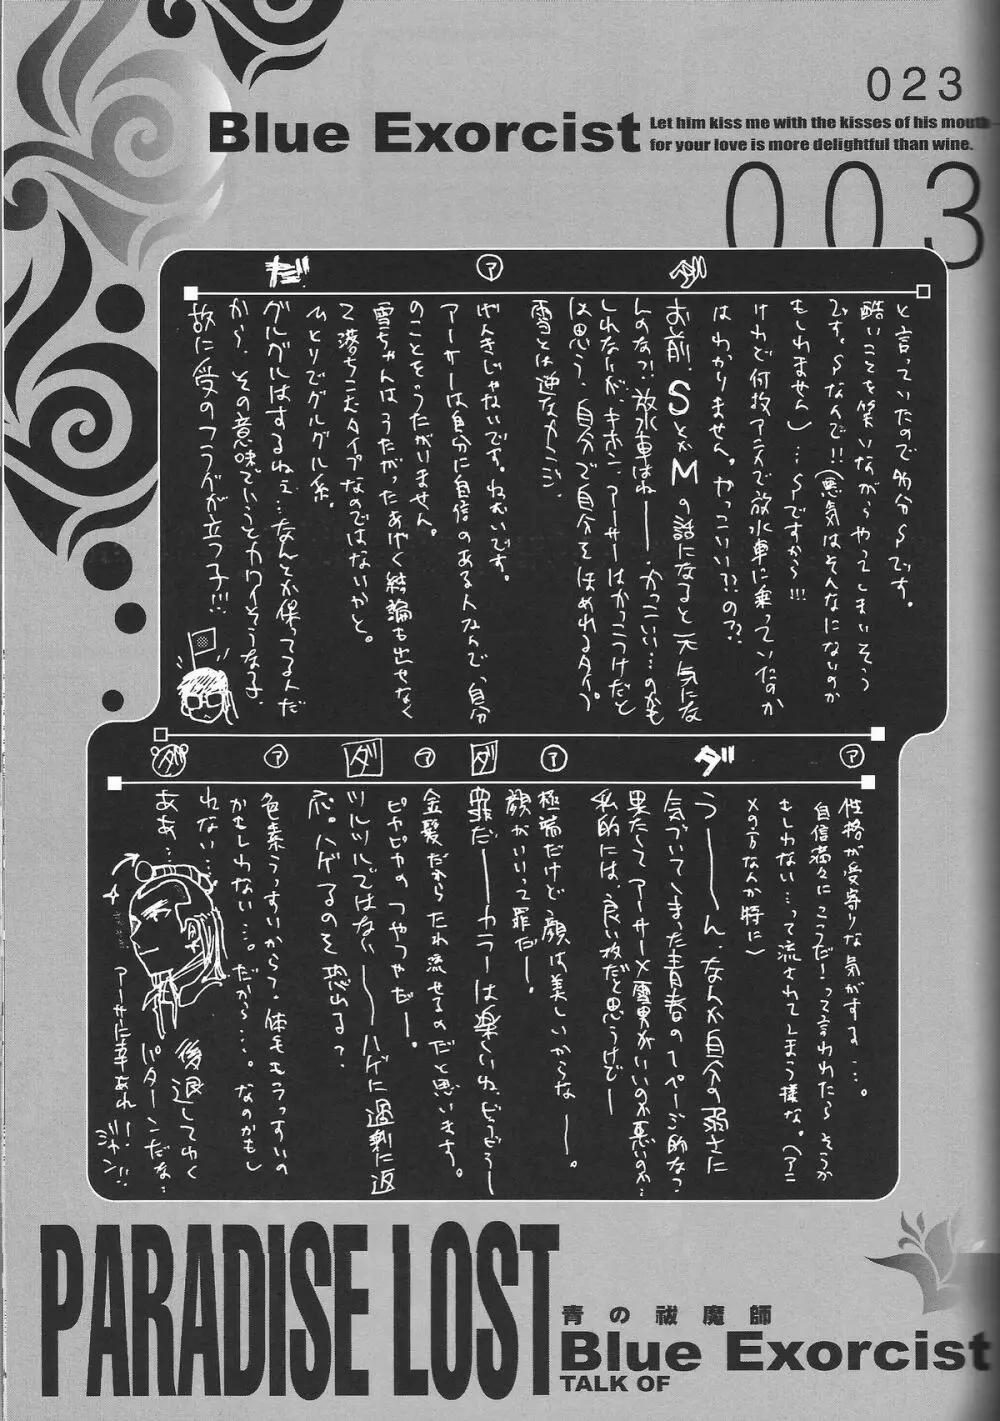 023
Blue Exorcist
Let him kiss me with the kisses of his mouth
for your love is more delightful than wine.
003
と言っていたので多分Sです。
酷いことを笑いながらやってしまいそう
です。Sなんで!!(悪気はそんなにないのか
もしれません)…Sですから!!!
けれど何故アニメで放水車に乗っていたのか
はわかりません。かっこいい??の??
ダ
お前、SとかMの話になると元気にな
んのな?!放水車はねー、かっこいい…のかも
しれないが、キホン、アーサーはかっこうけだと
は思う、自分で自分をほめれるタイプ
雪とは逆なカンジ。
ア
げんきじゃないです。ねむいです。
アーサーは自分に自信のある人なんで、自分
のことをうたがいません。
雪ちゃんは、うたがったあげく結論も出せなく
て落ちこむタイプなのではないかと。
ひとりでグルグル系。
だ
グルグルはするねぇ…なんとか保ってるんだ
から、その意味でいうとカワイそうな子、
故に受のフラグが立つ子!!!
ア
性格が受寄りな気がする…。
自信満々にこうだ!って言われたらそうか
もしれない…って流されてしまう様な。(アニ
メの方なんか特に)
ダ
うーーん、なんか自分の弱さに
気づいてしまった青春の1ページ的な?
果たしてアーサー×雪男がいいのか悪いのか…
私的には、良い攻だと思うけどー
ア
極端だけど顔は美しいからなー。
顔がいいって罪だー。
ダ
罪だーーカラーは楽しいね、どうどうー
ア
金髪だれらたれ流せるのだと思います。
ピカピカのつやつやだー。
ダ
ツルツルではないーーハゲに過剰に返
応。ハゲるのを恐れる?
ア
色素うっすいからって、体毛もうっすいの
かもしれない…。だから…。なのかもし
れない…
ダ
ああ…
後退してゆく
パターンだな…
アーサーに幸あれ!
ジャン!!
PARADISE LOST
青の祓魔師
Blue Exorcist
TALK OF